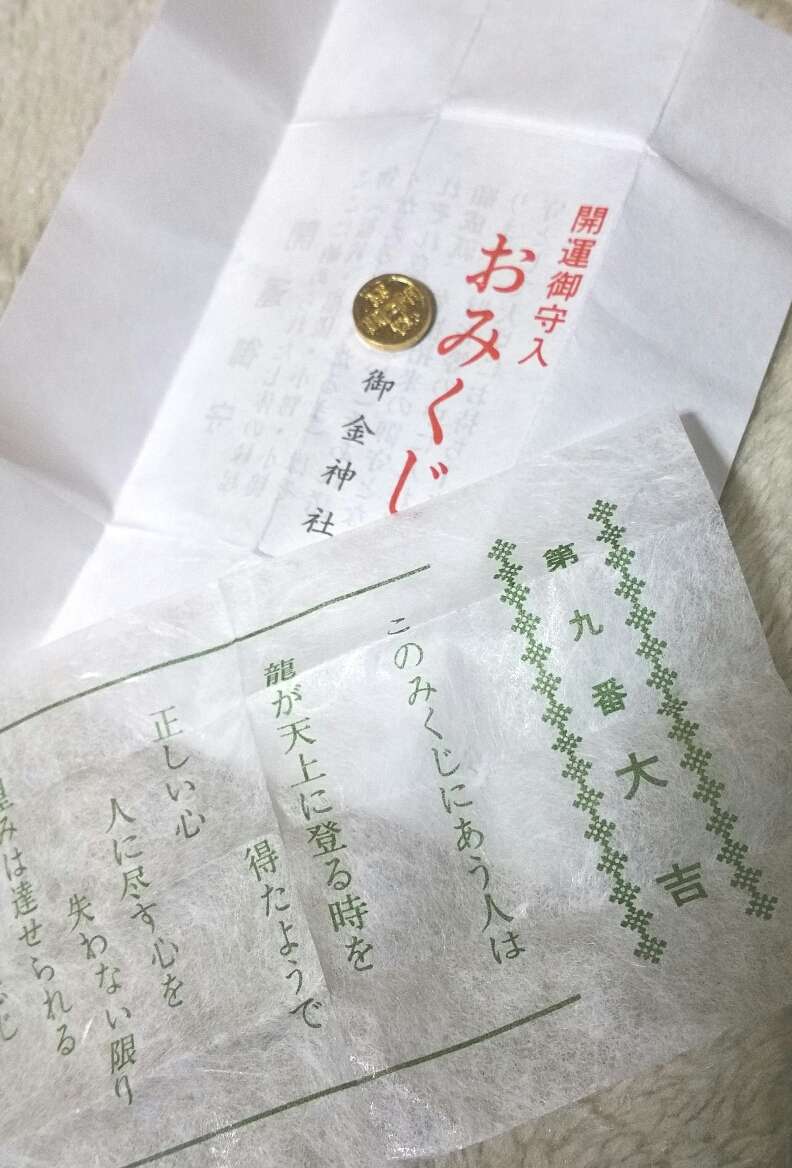 開運御守入
おみくじ
御金神社
第九番 大吉
このみくじにあう人は
龍が天上に登る時を
得たようで
正しい心
人に尽す心を
失わない限り
望みは達せられる